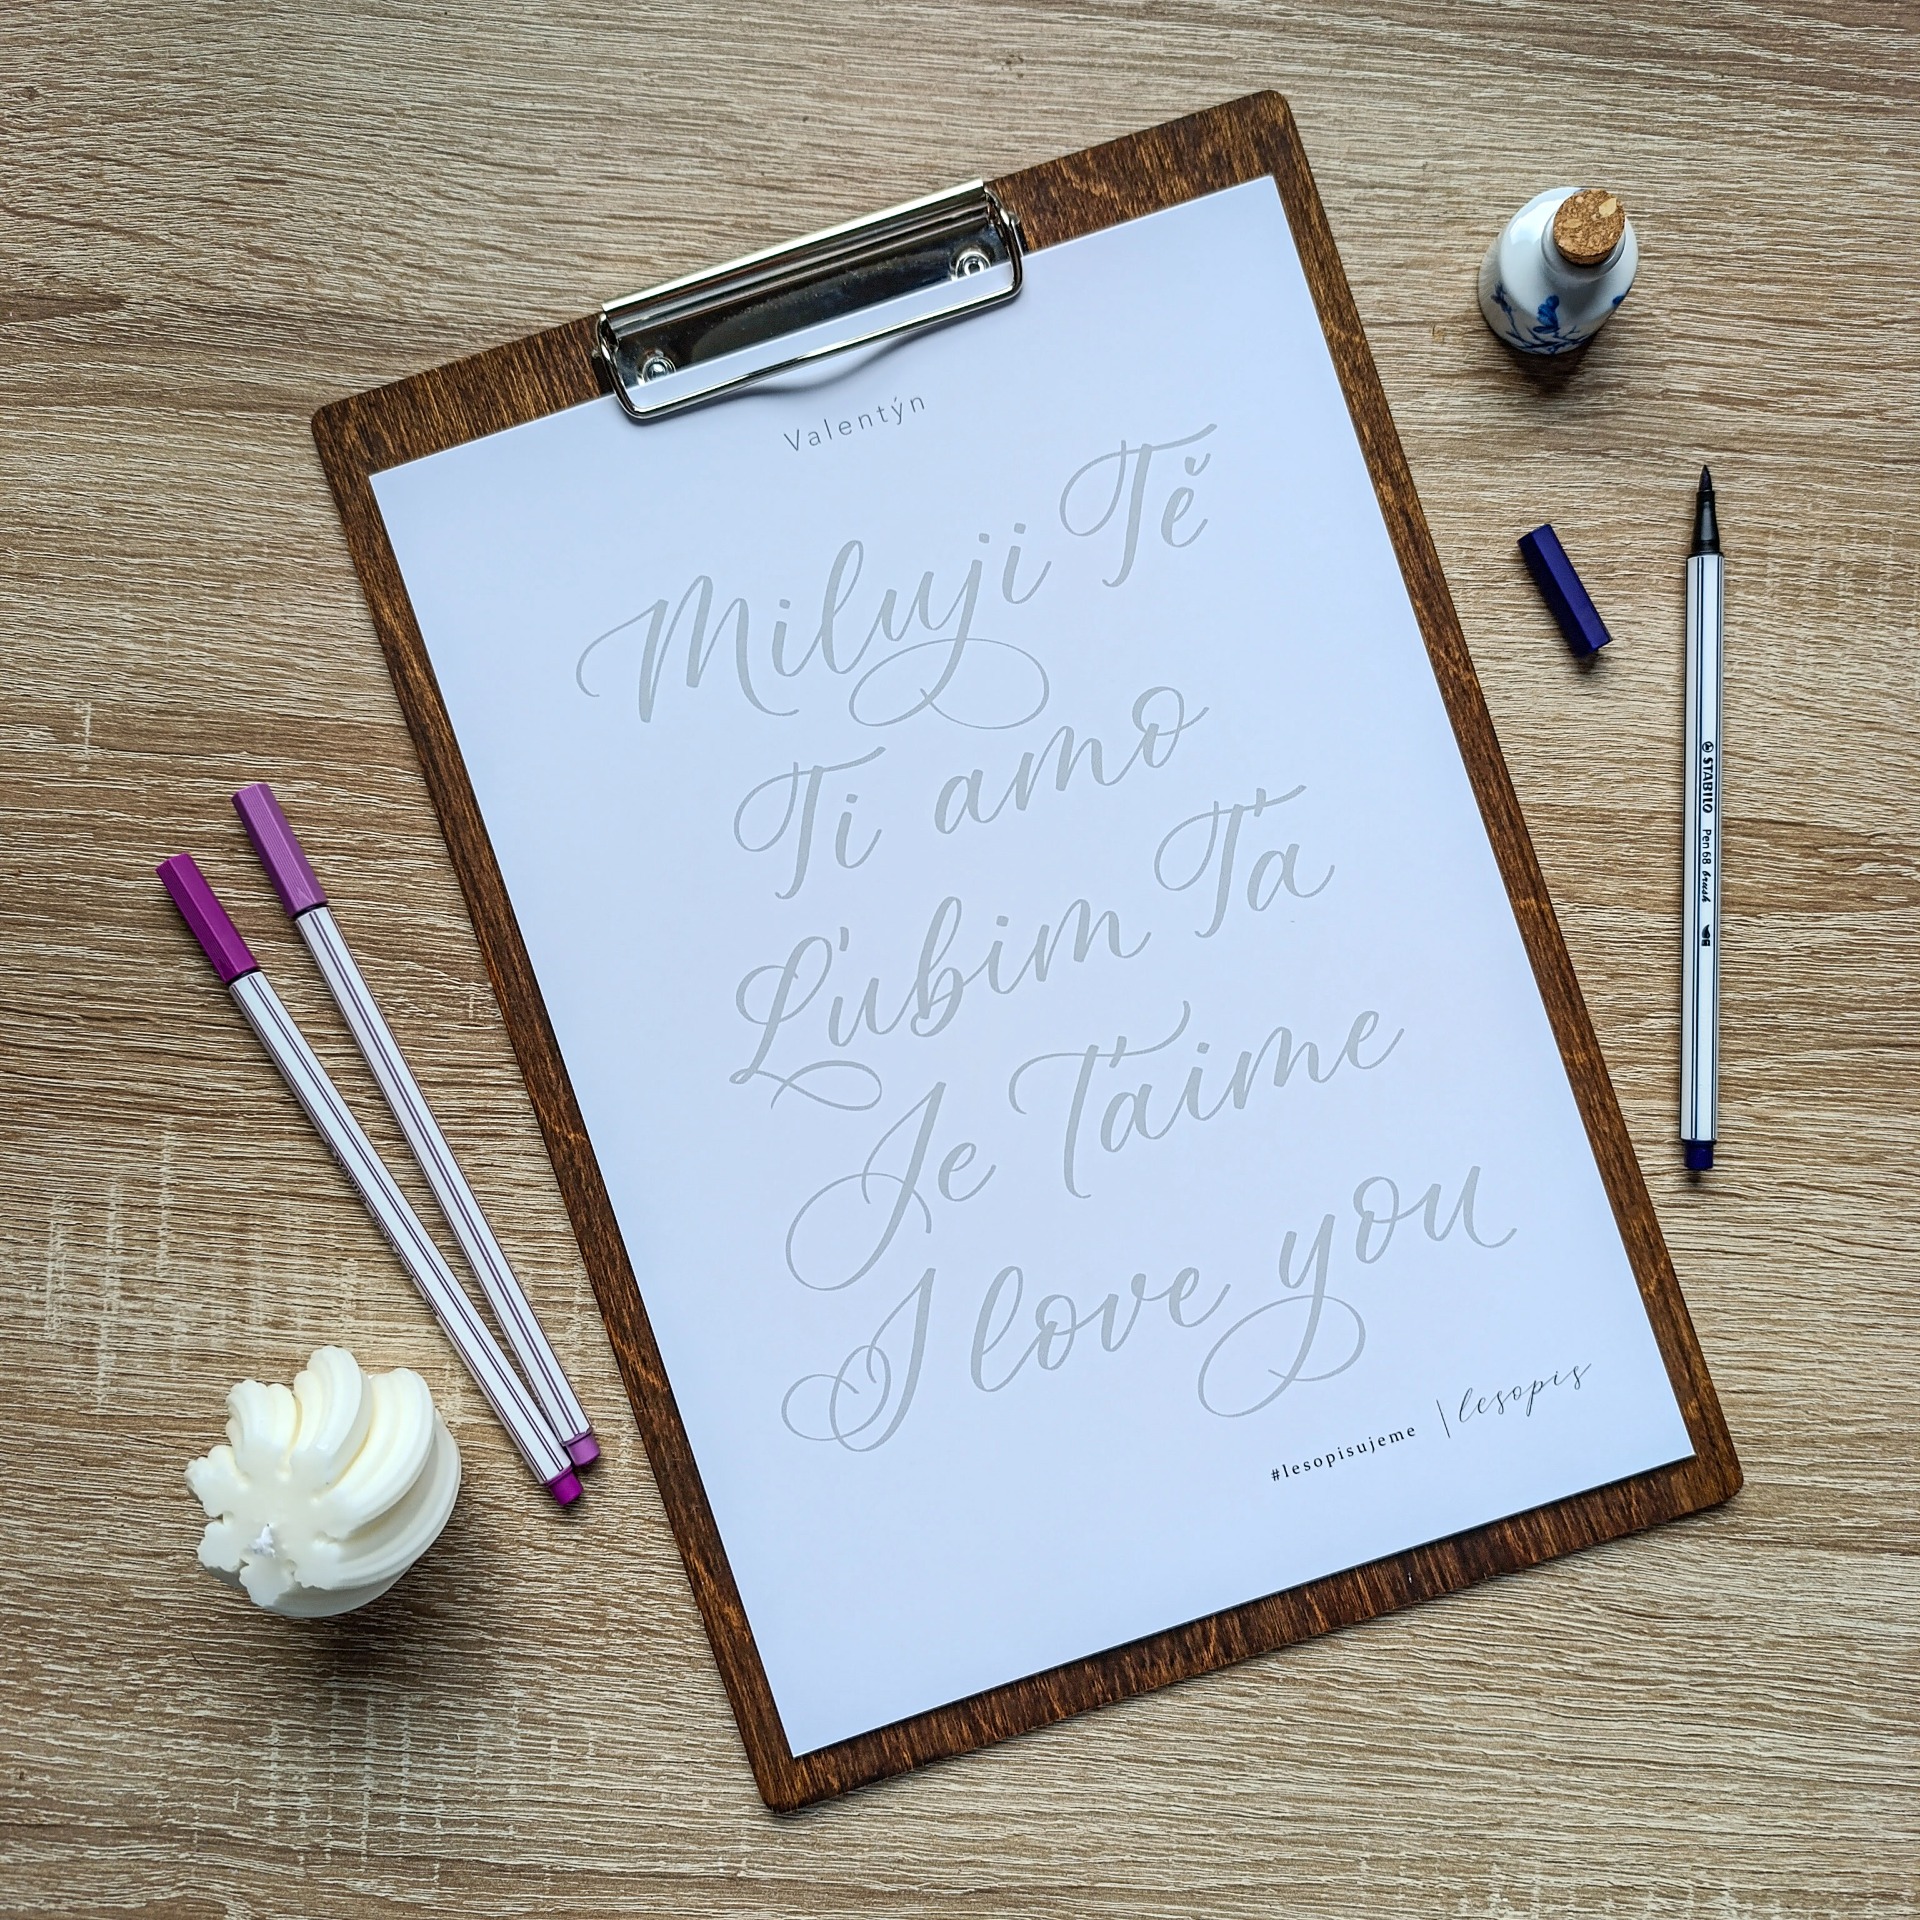 Valentýn
Miluji Tě
Ti amo
Ľubim Ťa
Je t'aime
I love you
#lesopisujeme | lesopis
STABILO Pen 68 brush